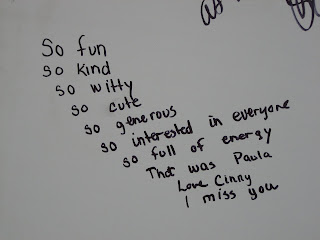 So fun
so kind
so witty
so cute
so generous
so interested in everyone
so full of energy
That was Paula
Love Cinny
I miss you